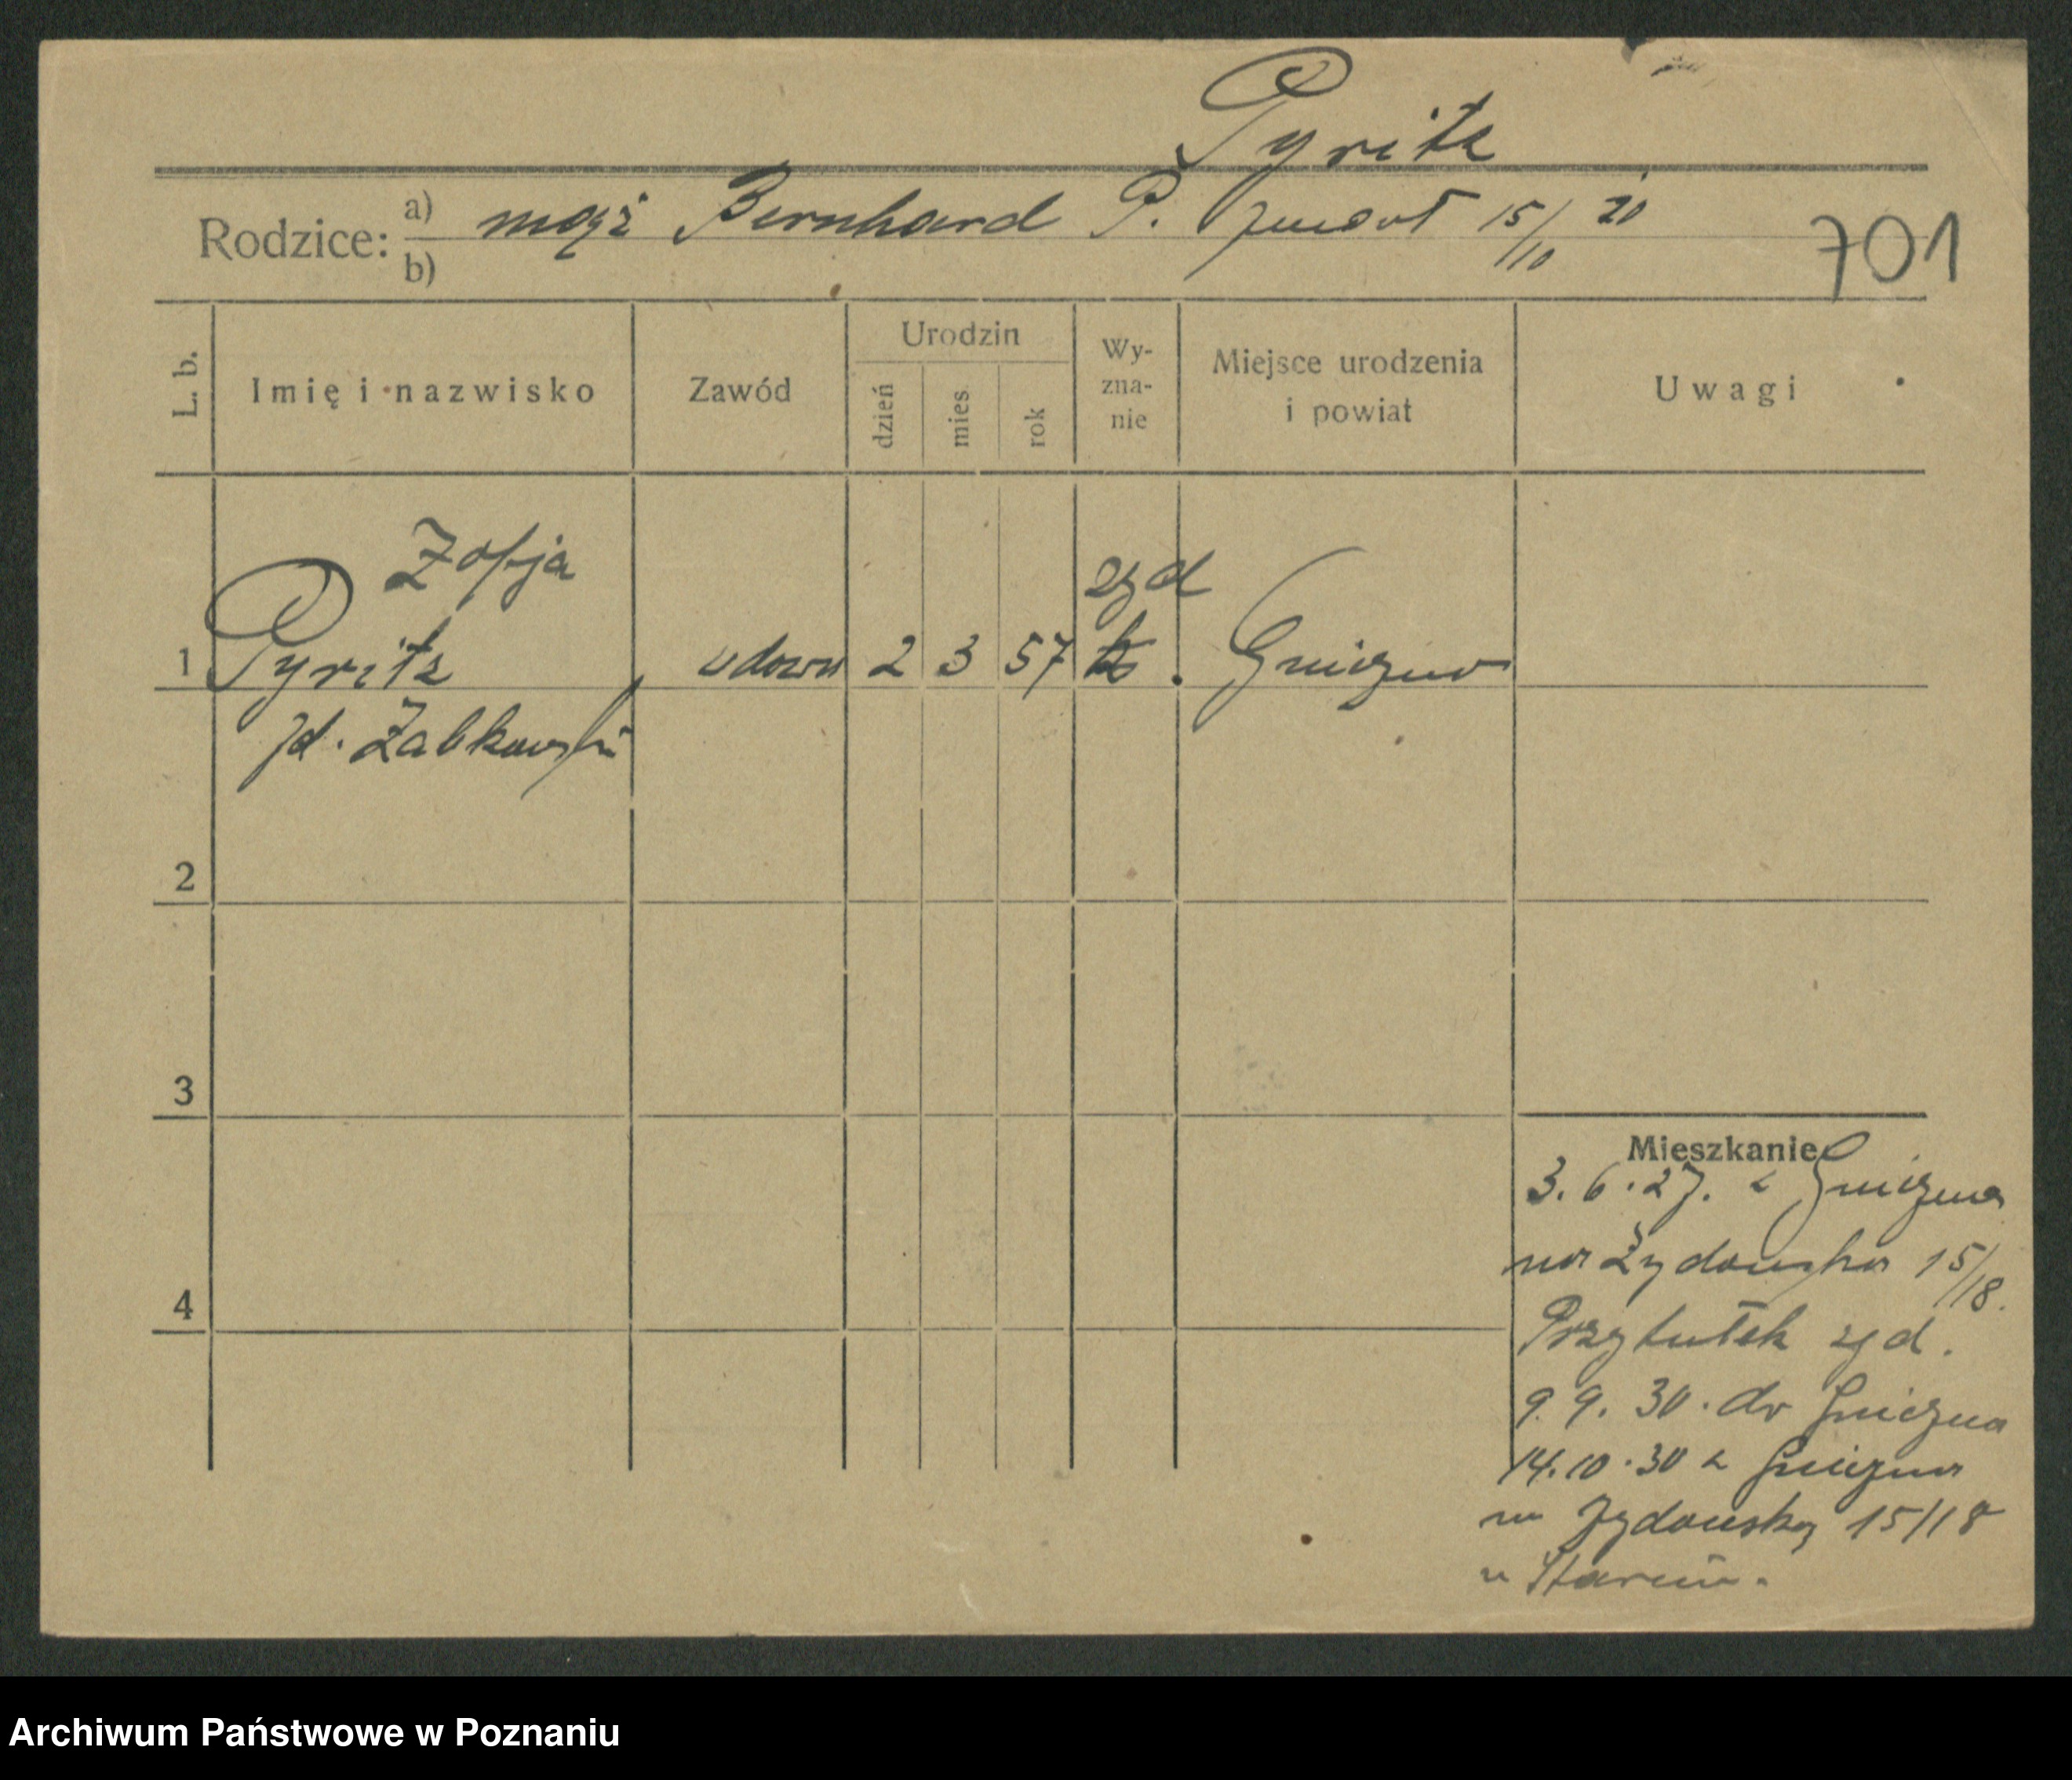 Pyritz
Rodzice: a) mąż Bernhard P. zmarł 15/10 20
b)
701
L. b.
Imię i nazwisko
Zawód
Urodzin
dzień
mies.
rok
Wy-
zna-
nie
Miejsce urodzenia
i powiat
Uwagi
Zofja
żyd
1 Pyritz wdowa 2 3 57 Gniezno
Żabkowski
2
3
4
Mieszkanie
3.6.27. z Gniezna
na Żydowska 15/18.
Przytułek żyd.
9.9.30. do Gniezna
14.10.30 z Gniezna
na Żydowską 15/18
Archiwum Państwowe w Poznaniu